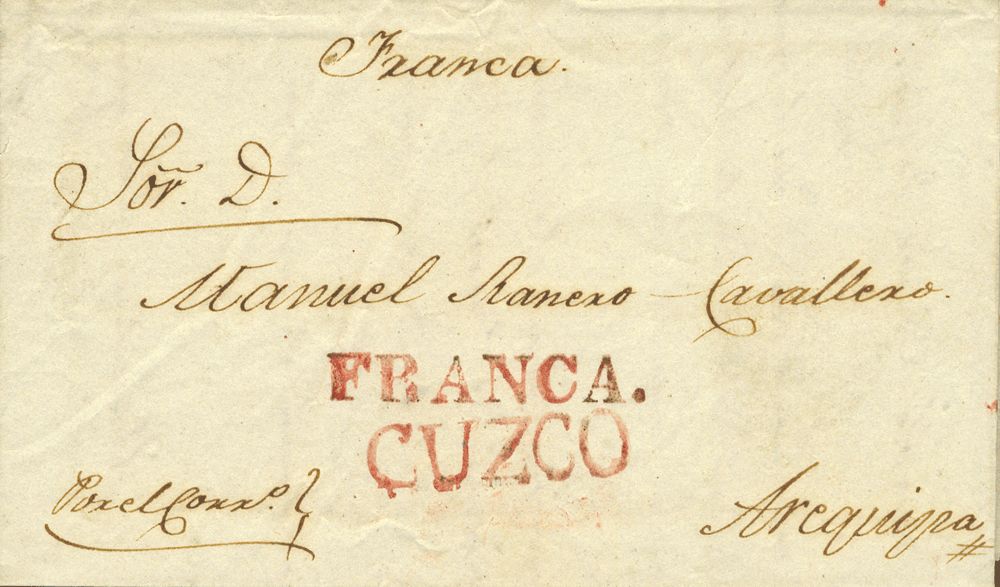 Franca.
Sõr. D.
Manuel Ranero Cavallero.
FRANCA.
CUZCO
Por el Corro.
Arequipa